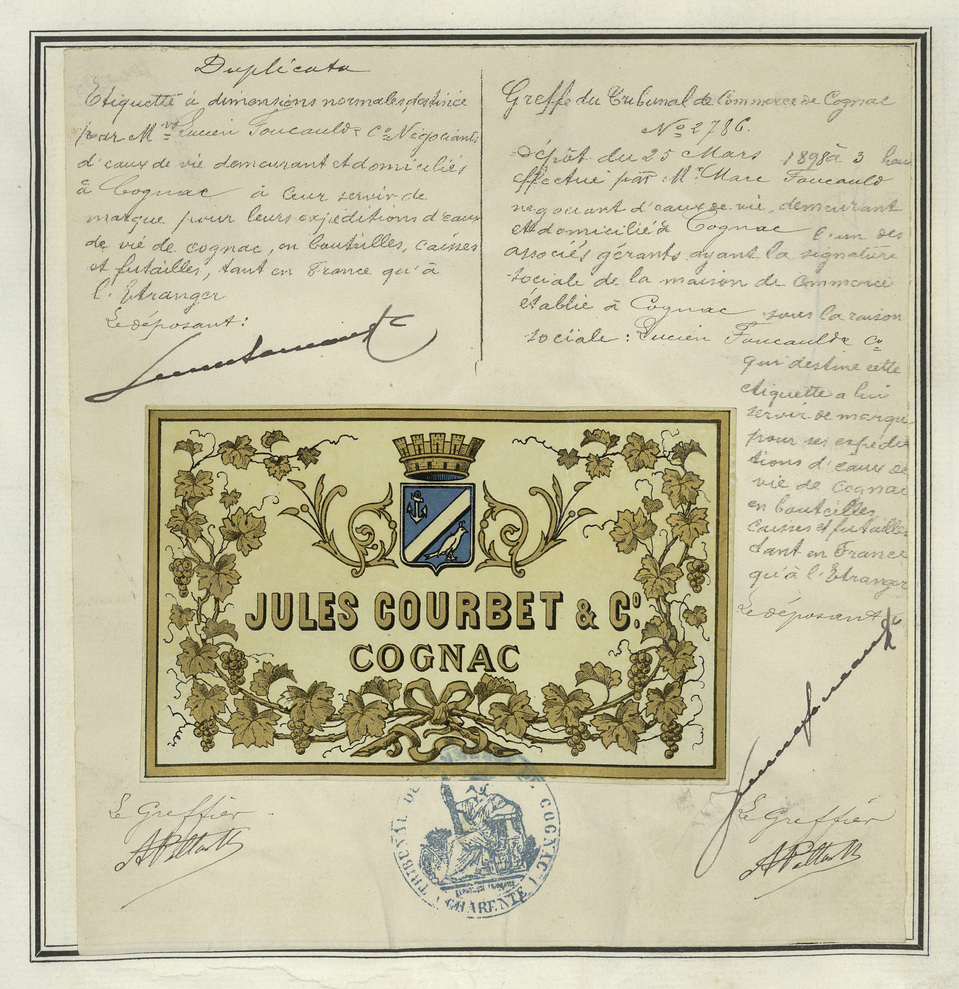 Duplicata
Etiquette à dimensions normales destinée
par Mrs Lucien Foucauld & Co Négociants
d'eaux de vie demeurant et domiciliés
à Cognac à leur servir de
marque pour leurs expéditions d'eaux
de vie de cognac, en bouteilles, caisses
et futailles, tant en France qu'à
l'Etranger
Le déposant:
Greffe du Tribunal de Commerce de Cognac
No 2786.
Dépôt du 25 Mars 1898 à 3 heu
effectué par Mr Marc Foucauld
negociant d'eaux de vie, demeurant
et domicilié à Cognac l'un des
associés gérants ayant la signature
sociale de la maison de Commerce
établie à Cognac sous la raison
sociale: Lucien Foucauld & Co
qui destine cette
etiquette a lui
servir de marque
pour ses expédi
tions d'eaux de
vie de Cognac
en bouteilles
caisses et futailles
tant en France
qu'à l'Etranger
Le déposant
JULES COURBET & Co.
COGNAC
Le Greffier
Le Greffier
TRIBUNAL DE COMMERCE DE COGNAC
REPUBLIQUE FRANÇAISE
(CHARENTE)